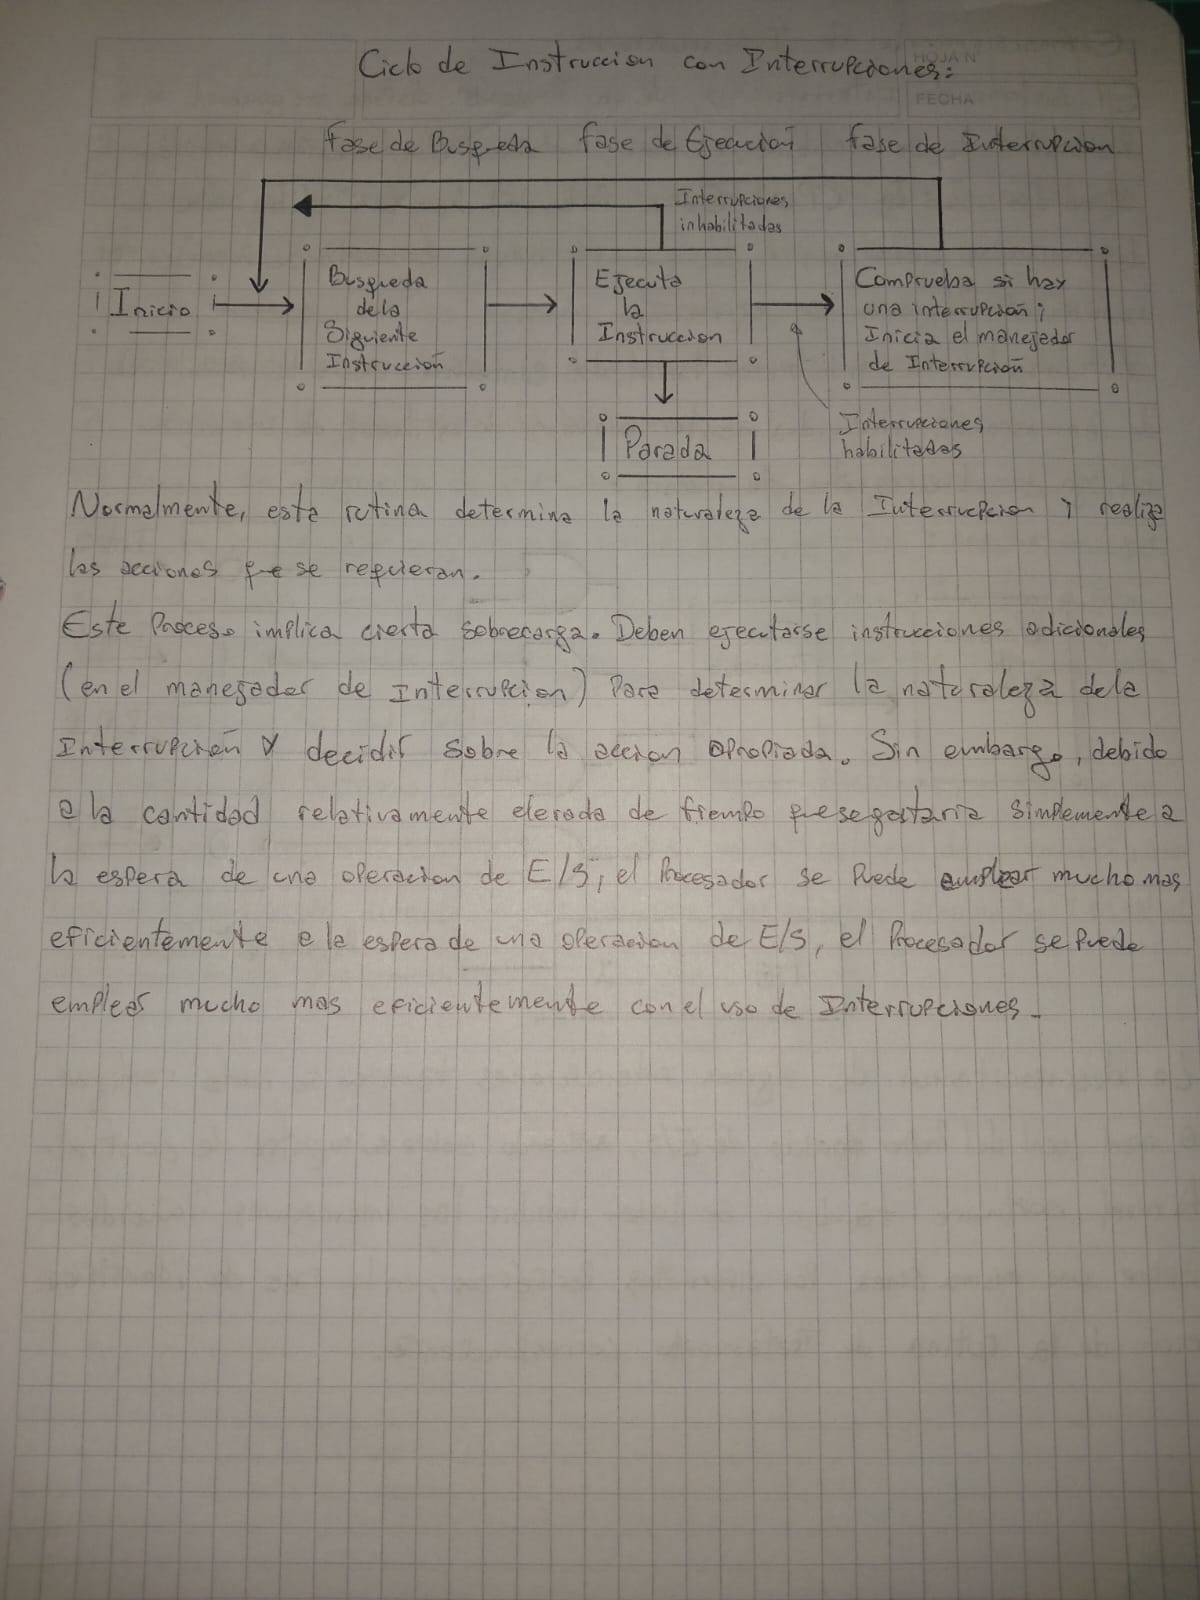 HOJA N
FECHA
Ciclo de Instruccion con Interrupciones:
Fase de Busqueda fase de Ejecución fase de Interrupcion
Interrupciones
inhabilitadas
Inicio
Busqueda
dela
Siguiente
Instrucción
Ejecuta
la
Instruccion
Comprueba si hay
una interrupción;
Inicia el manejador
de Interrupción
Parada
Interrupciones
habilitadas
Normalmente, esta rutina determina la naturaleza de la Interrupcion y realiza
las acciones que se requieran.
Este Proceso implica cierta sobrecarga. Deben ejecutarse instrucciones adicionales
(en el manejador de Interrupcion) Para determinar la naturaleza dela
Interrupción y decidir sobre la accion apropiada. Sin embargo, debido
a la cantidad relativamente elevada de tiempo que se gastaria simplemente a
la espera de una operacion de E/S, el Procesador se Puede emplear mucho mas
eficientemente a la espera de una operacion de E/S, el Procesador se Puede
emplear mucho mas eficientemente con el uso de Interrupciones.